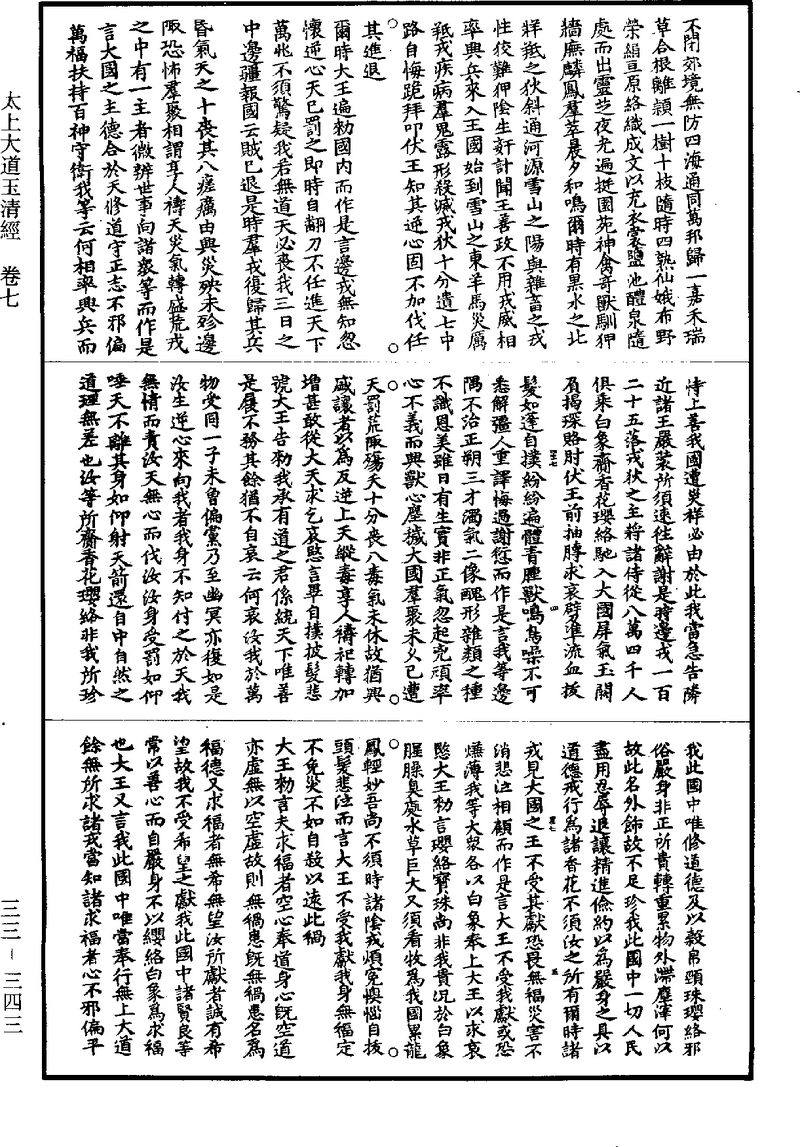 太上大道玉清經 卷七
三三－三四三
不閉郊境無防四海通同萬邦歸一嘉禾瑞
草合根離穎一樹十枝隨時四熟仙娥布野
榮絹亘原絡織成文以充衣裳鹽池醴泉隨
處而出靈芝夜光遍挺園苑神禽奇獸馴狎
牆廡麟鳳羣萃晨夕和鳴爾時有黑水之北
牂羝之狄斜通河源雪山之陽與雜畜之戎
性佷難狎陰生奸計聞王善政不用戎威相
率興兵來入王國始到雪山之東羊馬災厲
羝戎疾病羣鬼露形殺滅戎狄十分遺七中
路自悔跪拜叩伏王知其逆心固不加伐任
其進退
爾時大王遍勑國內而作是言邊戎無知忽
懷逆心天已罰之即時自翻刀不任進天下
萬兆不須驚疑我若無道天必喪我三日之
中邊疆報國云賊已退是時羣戎復歸其兵
昏氣天之十喪其八瘥癘由興災殃未殄邊
陬恐怖羣聚相謂享人禱天災氣轉盛荒戎
之中有一主者微辨世事向諸衆等而作是
言大國之主德合於天修道守正志不邪偏
萬福扶持百神守衛我等云何相率興兵而
悖上善我國遭災祥必由於此我當急告隣
近諸王嚴裝所須速往辭謝是時邊戎一百
二十五落戎狄之主將諸侍從八萬四千人
俱乘白象齎香花瓔珞馳入大國屏氣玉闕
肩揭琛賂肘伏王前抽膊求哀劈準流血拔
髮如蓬自撲紛紛遍體青腫獸鳴鳥噪不可
悉解彊人重譯悔過謝愆而作是言我等邊
隅不治正朔三才濁氣二像醜形雜類之種
不識恩美雖日有生實非正氣忽起兇頑率
心不義而興獸心塵穢大國羣聚未乂已遭
天罰荒陬殤夭十分喪八毒氣未休故猶興
盛讓者以為反逆上天縱毒享人禱祀轉加
增甚敢從大天求乞哀愍言畢自撲披髮悲
號大王告勑我承有道之君係統天下唯善
是展不務其餘猶不自哀云何哀汝我於萬
物受同一子未曾偏黨乃至幽冥亦復如是
汝生逆心來向我者我身不知付之於天我
無情而責汝天無心而伐汝汝身受罰如仰
唾天不離其身如仰射天箭還自中自然之
道理無差也汝等所齎香花瓔珞非我所珍
我此國中唯修道德及以穀帛頸珠瓔絡邪
俗嚴身非正所貴轉重累物外滯塵滓何以
故此名外飾故不足珍我此國中一切人民
盡用忍辱進讓精進儉約以為嚴身之具以
道德戒行為諸香花不須汝之所有爾時諸
戎見大國之王不受其獻恐畏無福災害不
消悲泣相顧而作是言大王不受我獻或恐
嫌薄我等大衆各以白象奉上大王以求哀
愍大王勑言瓔絡寶珠尚非我貴況於白象
腥臊臭處水草巨大又須看牧為我國累龍
鳳輕妙吾尚不須時諸陰戎煩冤懊惱自拔
頭髮悲泣而言大王不受我獻我身無福定
不免災不如自殺以遠此禍
大王勑言夫求福者空心奉道身心旣空道
亦虛無以空虛故則無禍患旣無禍患名為
福德又求福者無希無望汝所獻者誠有希
望故我不受希望之獻我此國中諸賢良等
常以善心而自嚴身不以纓絡白象為求福
也大王又言我此國中唯當奉行無上大道
餘無所求諸戎當知諸求福者心不邪偏平